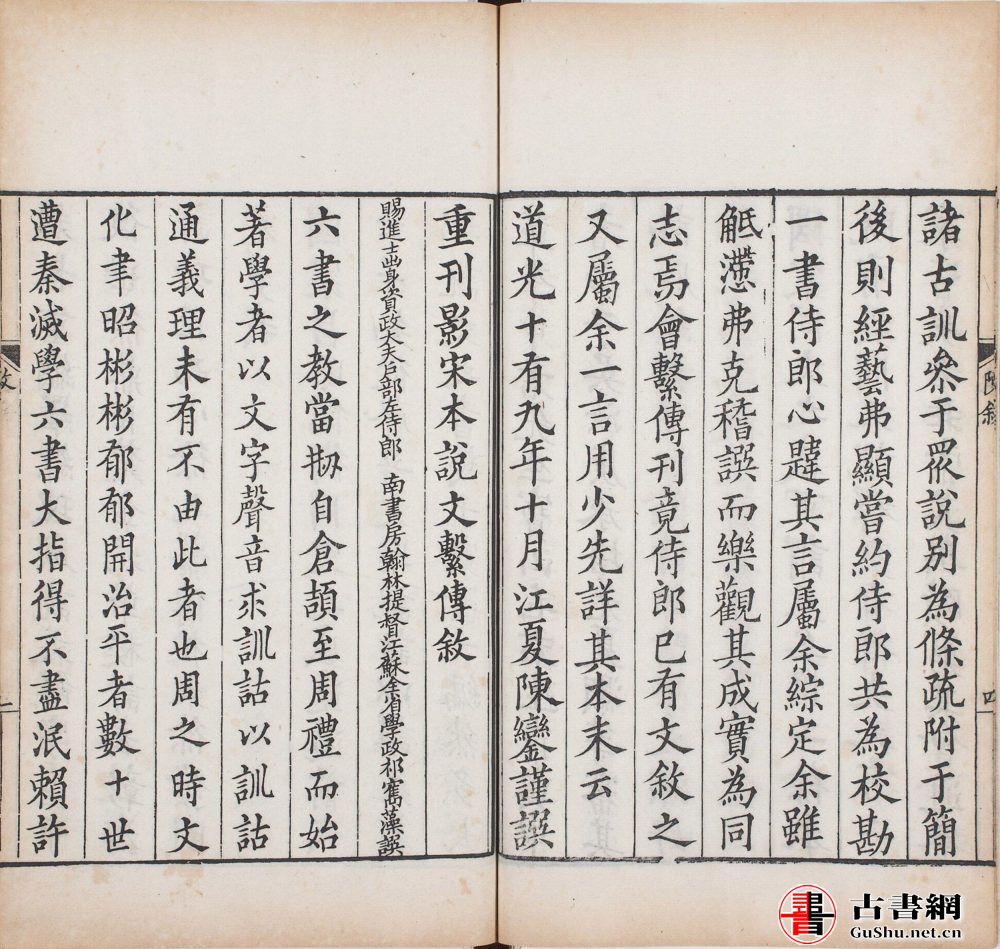 諸古訓叅于眾說別為條疏附于簡
後則經藝弗顯嘗約侍郎共為校勘
一書侍郎心韙其言屬余綜定余雖
觗滯弗克稽譔而樂觀其成實為同
志焉會繫傳刊竟侍郎已有文敘之
又屬余一言用少先詳其本末云
道光十有九年十月江夏陳鑾謹譔
重刊影宋本說文繫傳敘
賜進士出身資政大夫戶部左侍郎 南書房翰林提督江蘇全省學政祁寯藻譔
六書之教當刱自倉頡至周禮而始
著學者以文字聲音求訓詁以訓詁
通義理未有不由此者也周之時文
化聿昭彬彬郁郁開治平者數十世
遭秦滅學六書大指得不盡泯賴許
陳敘
四
敘
一
古書網
GuShu.net.cn